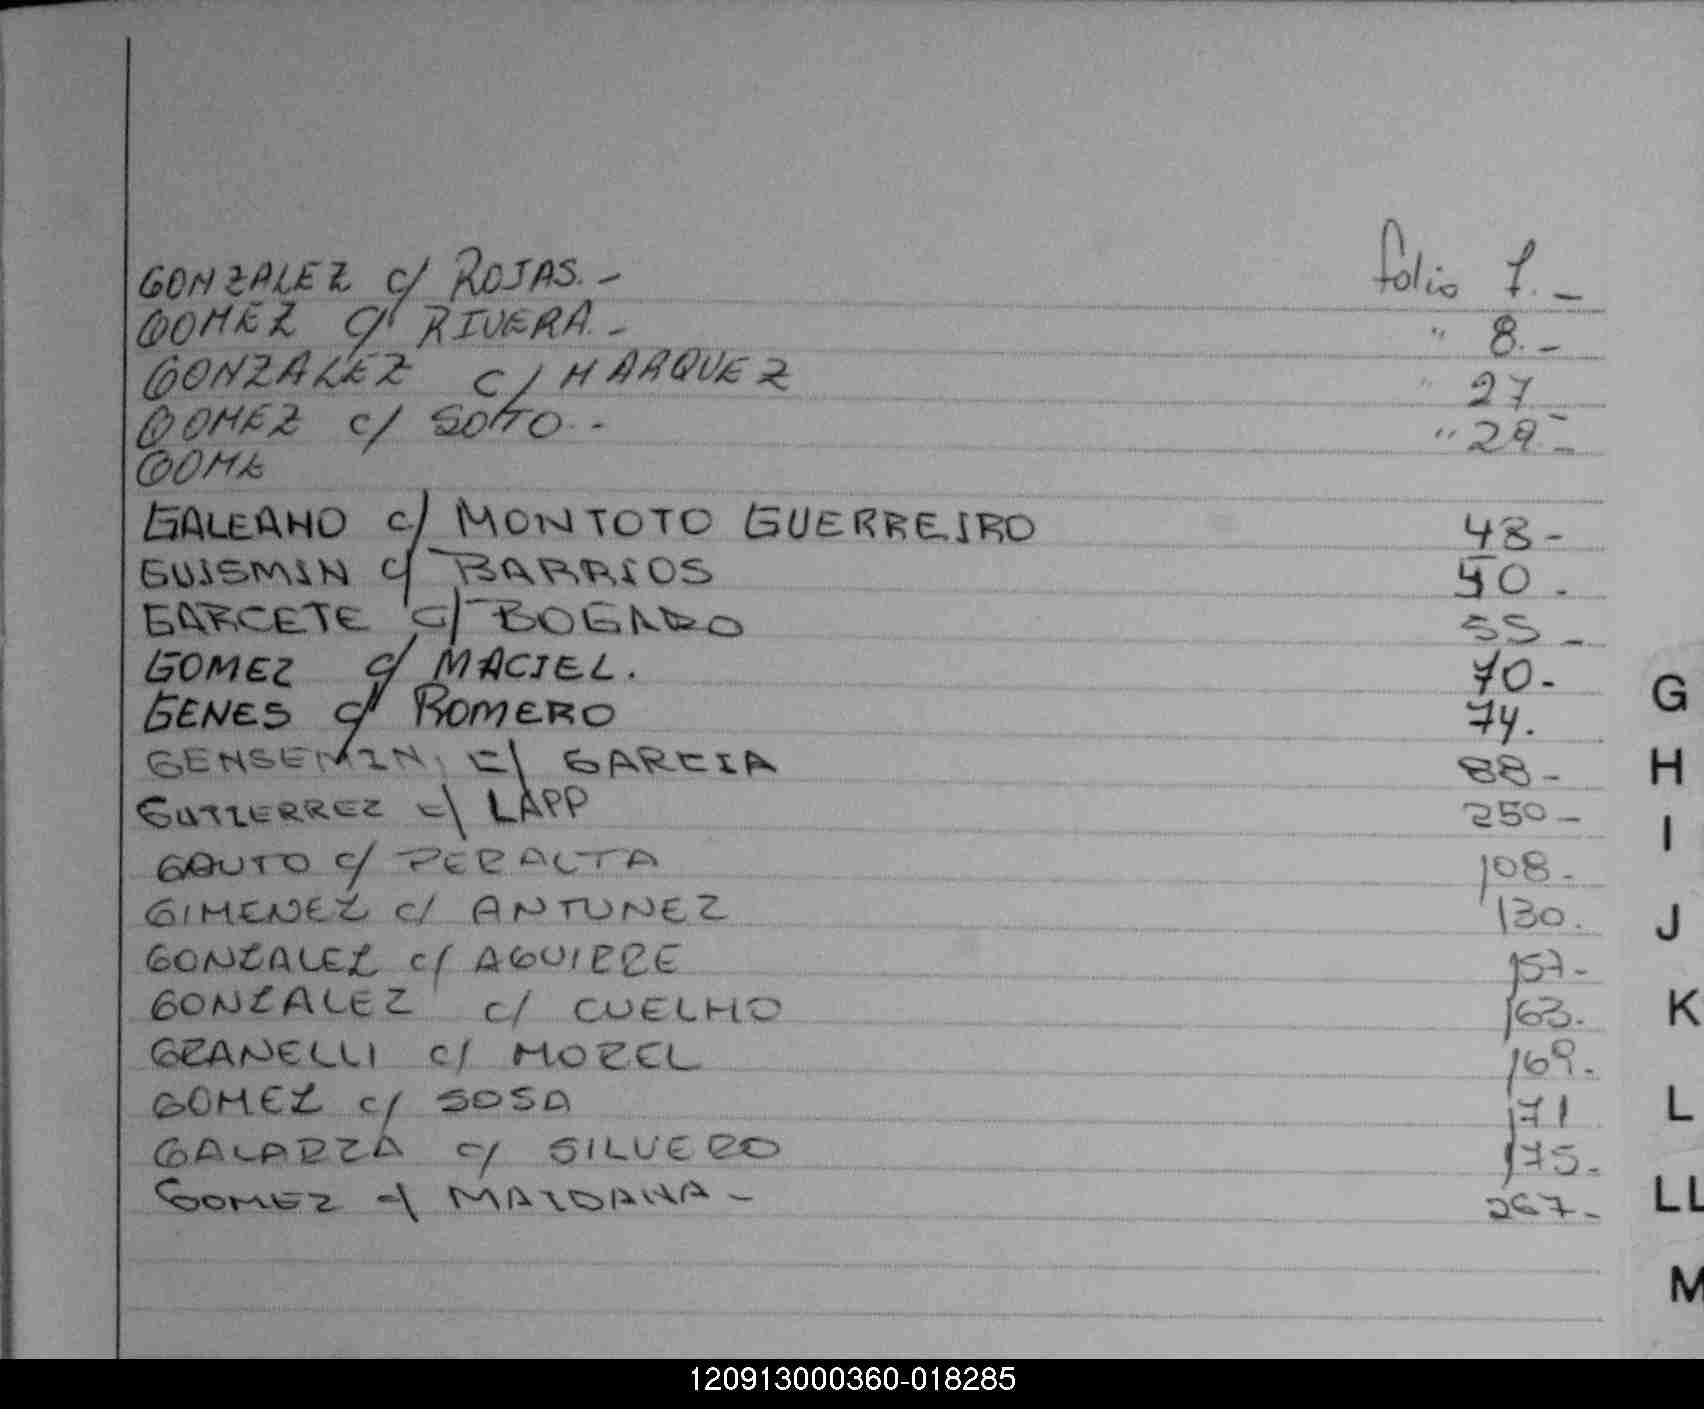 GONZALEZ c/ ROJAS.- folio 1.-
GOMEZ c/ RIVERA.- " 8.-
GONZALEZ c/ MARQUEZ " 27
GOMEZ c/ SOTO.- " 29.-
GOME
GALEANO c/ MONTOTO GUERREIRO 48-
GUISMIN c/ BARRIOS
GARCETE c/ BOGADO 55-
GOMEZ c/ MACIEL. 70-
GENES c/ ROMERO 74.
GENSEMIN c/ GARCIA 88-
GUTIERREZ c/ LAPP 250-
GAUTO c/ PERALTA 108.
GIMENEZ c/ ANTUNEZ 130.
GONZALEZ c/ AGUIRRE 157-
GONZALEZ c/ CUELHO 163.
GRANELLI c/ MOREL 169.
GOMEZ c/ SOSA 171
GALARZA c/ SILVERO 175.
GOMEZ c/ MAIDANA- 267-
G
H
I
J
K
L
LL
M
120913000360-018285